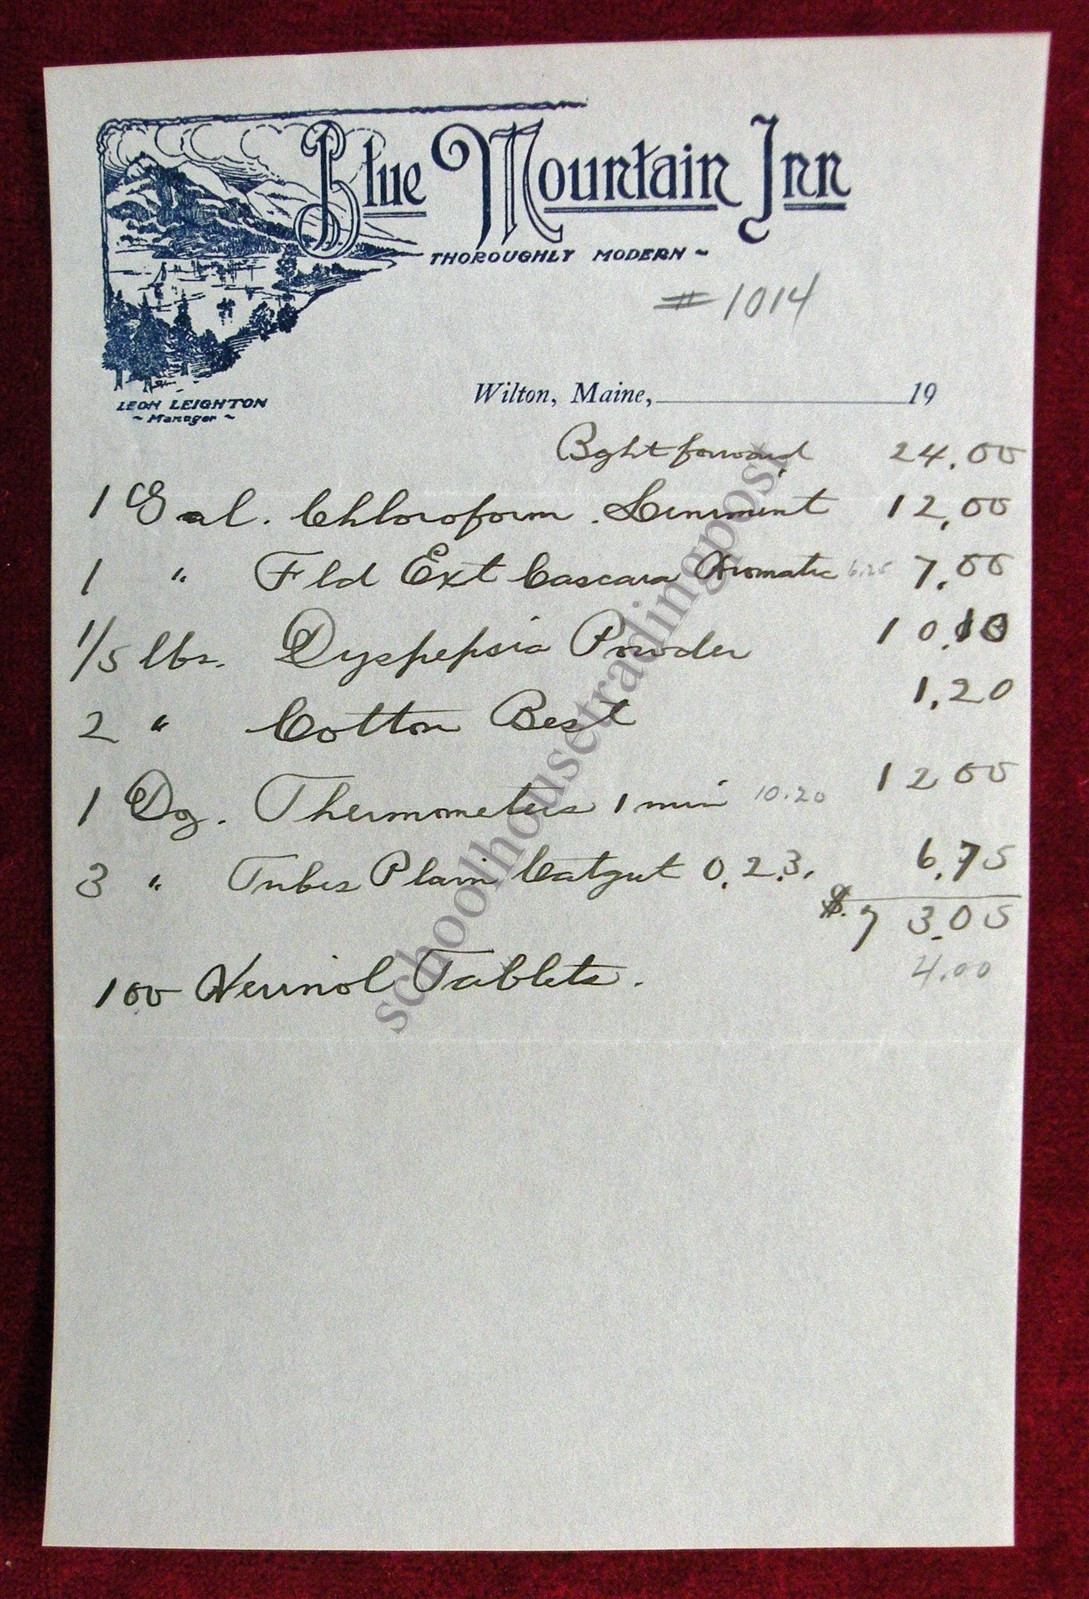 Blue Mountain Inn
THOROUGHLY MODERN ~
# 1014
LEON LEIGHTON
~ Manager ~
Wilton, Maine, 19
Bght forward 24.00
1 Gal. Chloroform Liniment 12.00
1 " Fld Ext Cascara Aromatic 6.25 7.00
1/5 lbs. Dyspepsia Powder 10.10
2 " Cotton Best 1.20
1 Dz. Thermometers 1 min 10.20 12 00
3 " Tubes Plain Catgut 0. 2. 3. 6.75
$. 73.05
100 Tablets. 4.00
schoolhousetradingpost